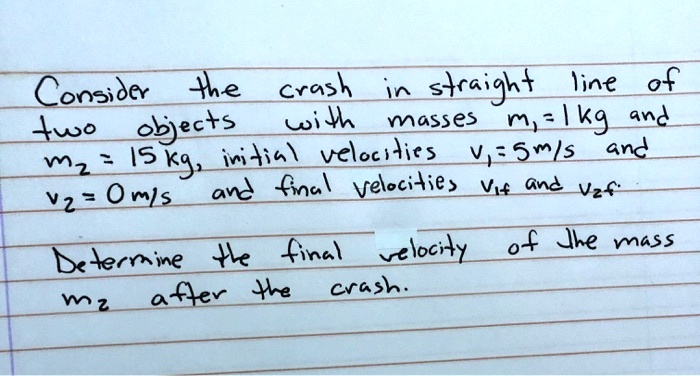 Consider the crash in straight line of
two objects with masses m₁ = 1 kg and
m₂ = 15 kg, initial velocities v₁ = 5 m/s and
v₂ = 0 m/s and final velocities v₁f and v₂f.
Determine the final velocity of the mass
m₂ after the crash.